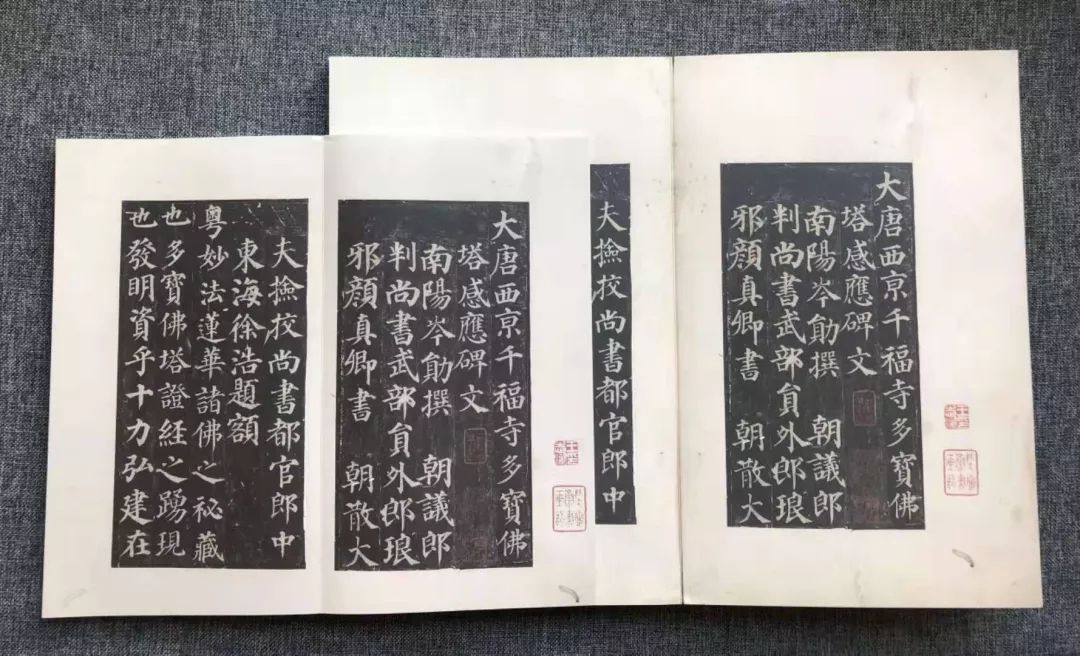 大唐西京千福寺多寶佛
塔感應碑文
南陽岑勛撰 朝議郎
判尚書武部員外郎琅
邪顏真卿書 朝散大
夫撿挍尚書都官郎中
大唐西京千福寺多寶佛
塔感應碑文
南陽岑勛撰 朝議郎
判尚書武部員外郎琅
邪顏真卿書 朝散大
夫撿挍尚書都官郎中
東海徐浩題額
粵妙法蓮華諸佛之秘藏
也多寶佛塔證經之踴現
也發明資乎十力弘建在